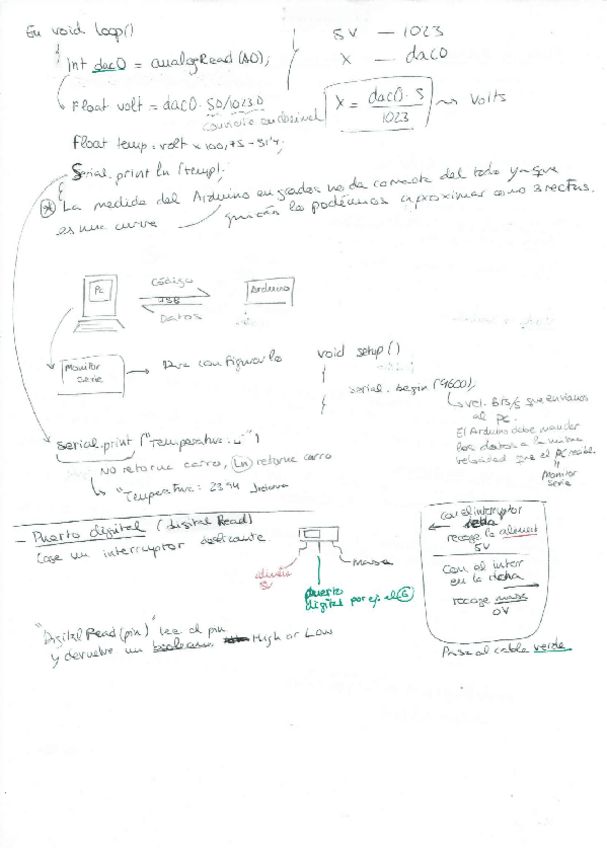 En void loop()
{
Int dac0 = analogRead (A0);
5V — 1023
X — dac0
Float volt = dac0 · 5.0/1023.0
X = dac0 · 5 / 1023 → Volts
Float temp = volt x 100,75 - 51'4;
Serial.print ln (temp);
}
* La medida del Arduino en grados no da correcta del todo ya que
es una curva
PC
Código
USB
Datos
Arduino
Monitor
serie
→ Para configurarlo
void setup ()
{
serial. begin (9600);
}
vel. Bits/s que enviamos
al PC.
El Arduino debe mandar
los datos a la misma
velocidad que el PC recibe
"
Monitor
serie
serial.print ("Temperatura: ")
No retorna carro, Ln retorna carro
"Temperatura: 23'94
— Puerto digital (digital Read)
interruptor deslizante
5V
masa
puerto
digital por ej. el 6
con el interruptor
recoge la
5V
Con el interr
en la dcha
recoge masa
0V
Pasa al cable verde
"Digital Read(pin)" lee el pin
y devuelve un High or Low